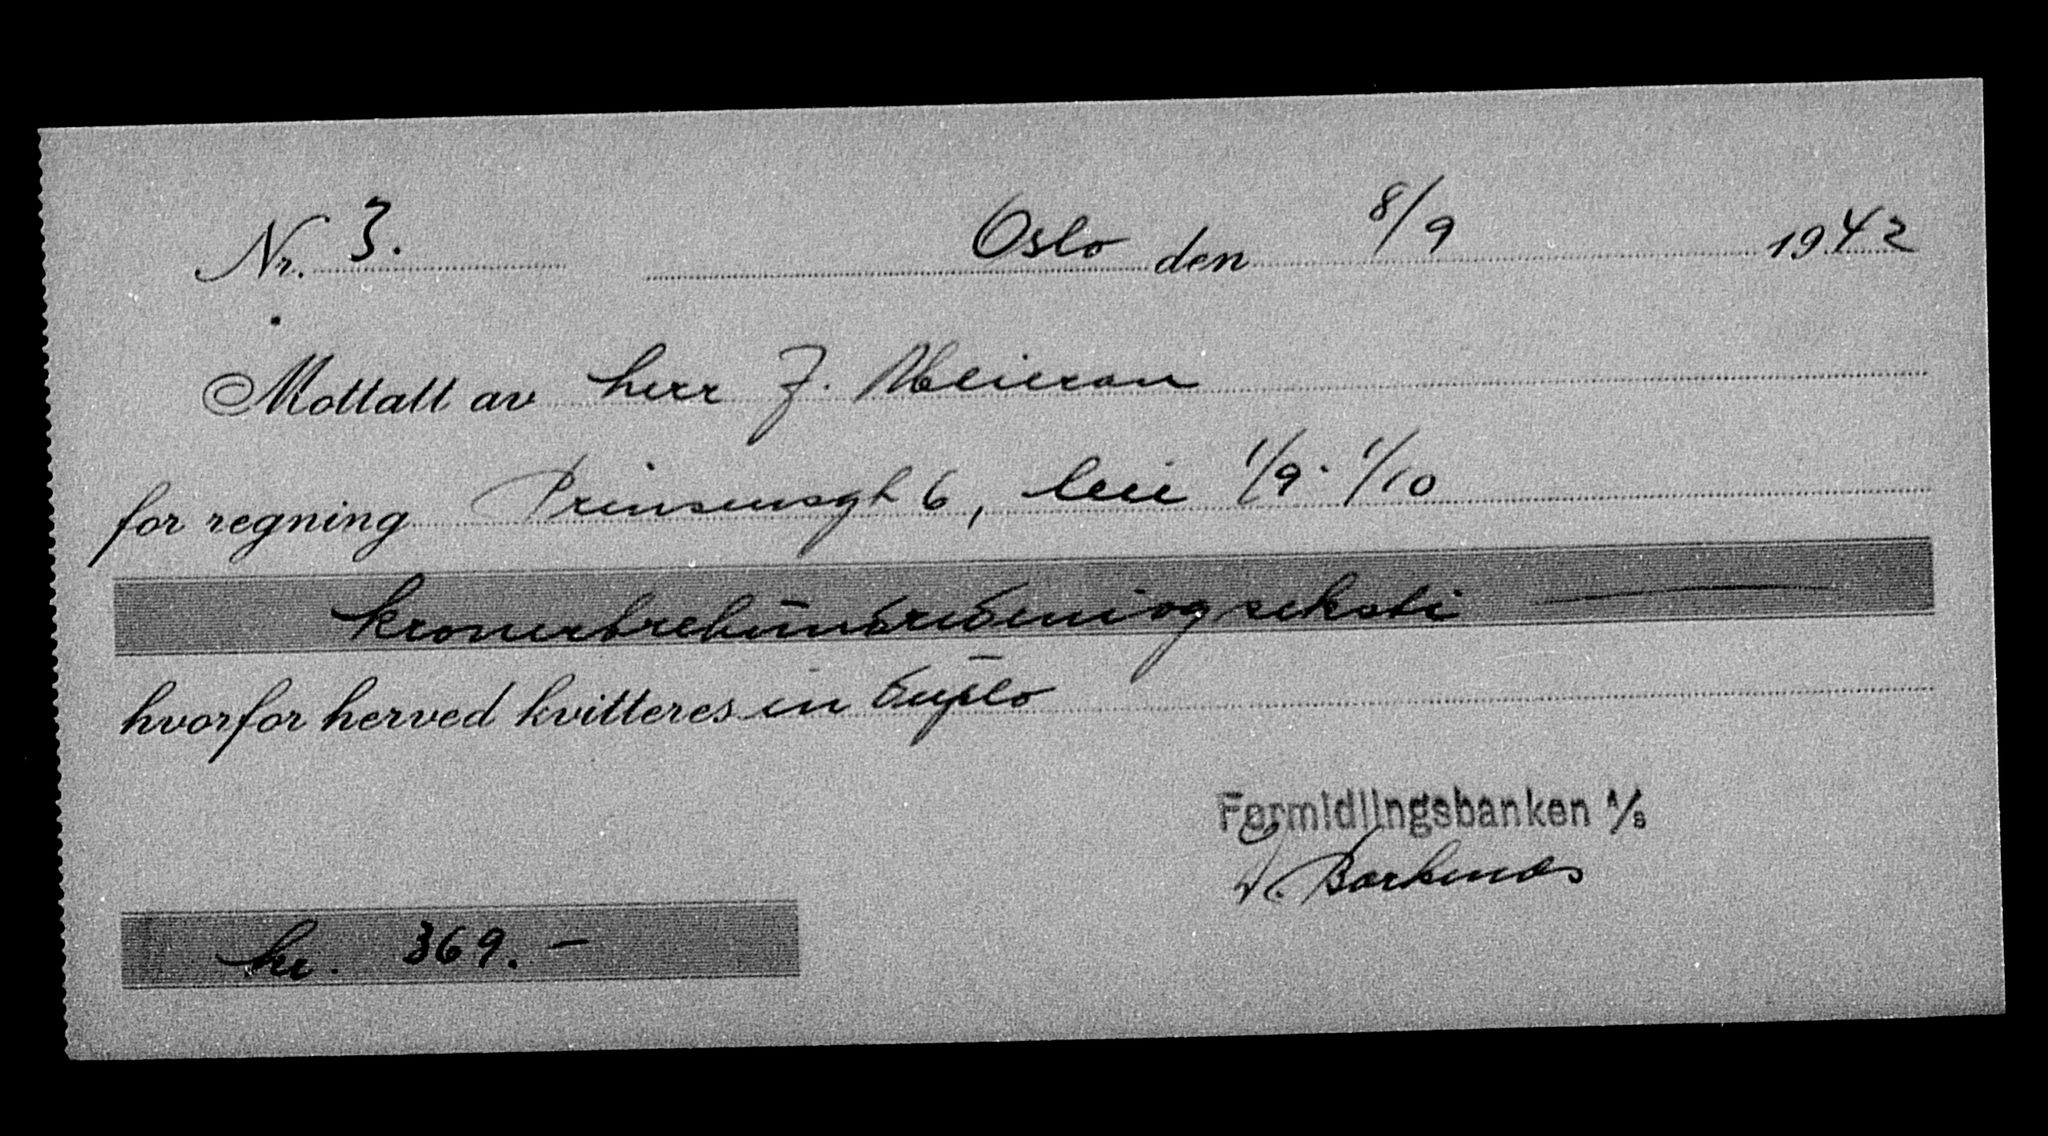 Nr. 3. Oslo den 8/9 1942
Mottatt av herr J. Meieran
for regning Prinsensgt 6, leie 1/9 - 1/10
kronertrehundredeniogseksti
hvorfor herved kvitteres in duplo
Formidlingsbanken A/S
kr. 369.–